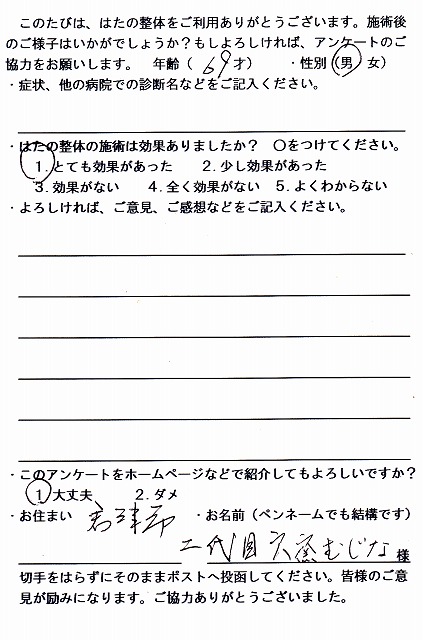 このたびは、はたの整体をご利用ありがとうございます。施術後
のご様子はいかがでしょうか？もしよろしければ、アンケートのご
協力をお願いします。 年齢（ 69才） ・性別（男 女）
・症状、他の病院での診断名などをご記入ください。
・はたの整体の施術は効果ありましたか？ 〇をつけてください。
1.とても効果があった 2.少し効果があった
3.効果がない 4.全く効果がない 5.よくわからない
・よろしければ、ご意見、ご感想などをご記入ください。
・このアンケートをホームページなどで紹介してもよろしいですか？
1 大丈夫、 2.ダメ
・お住まい 君津市 ・お名前（ペンネームでも結構です）
二代目穴窯むじな 様
切手をはらずにそのままポストへ投函してください。皆様のご意
見が励みになります。ご協力ありがとうございました。